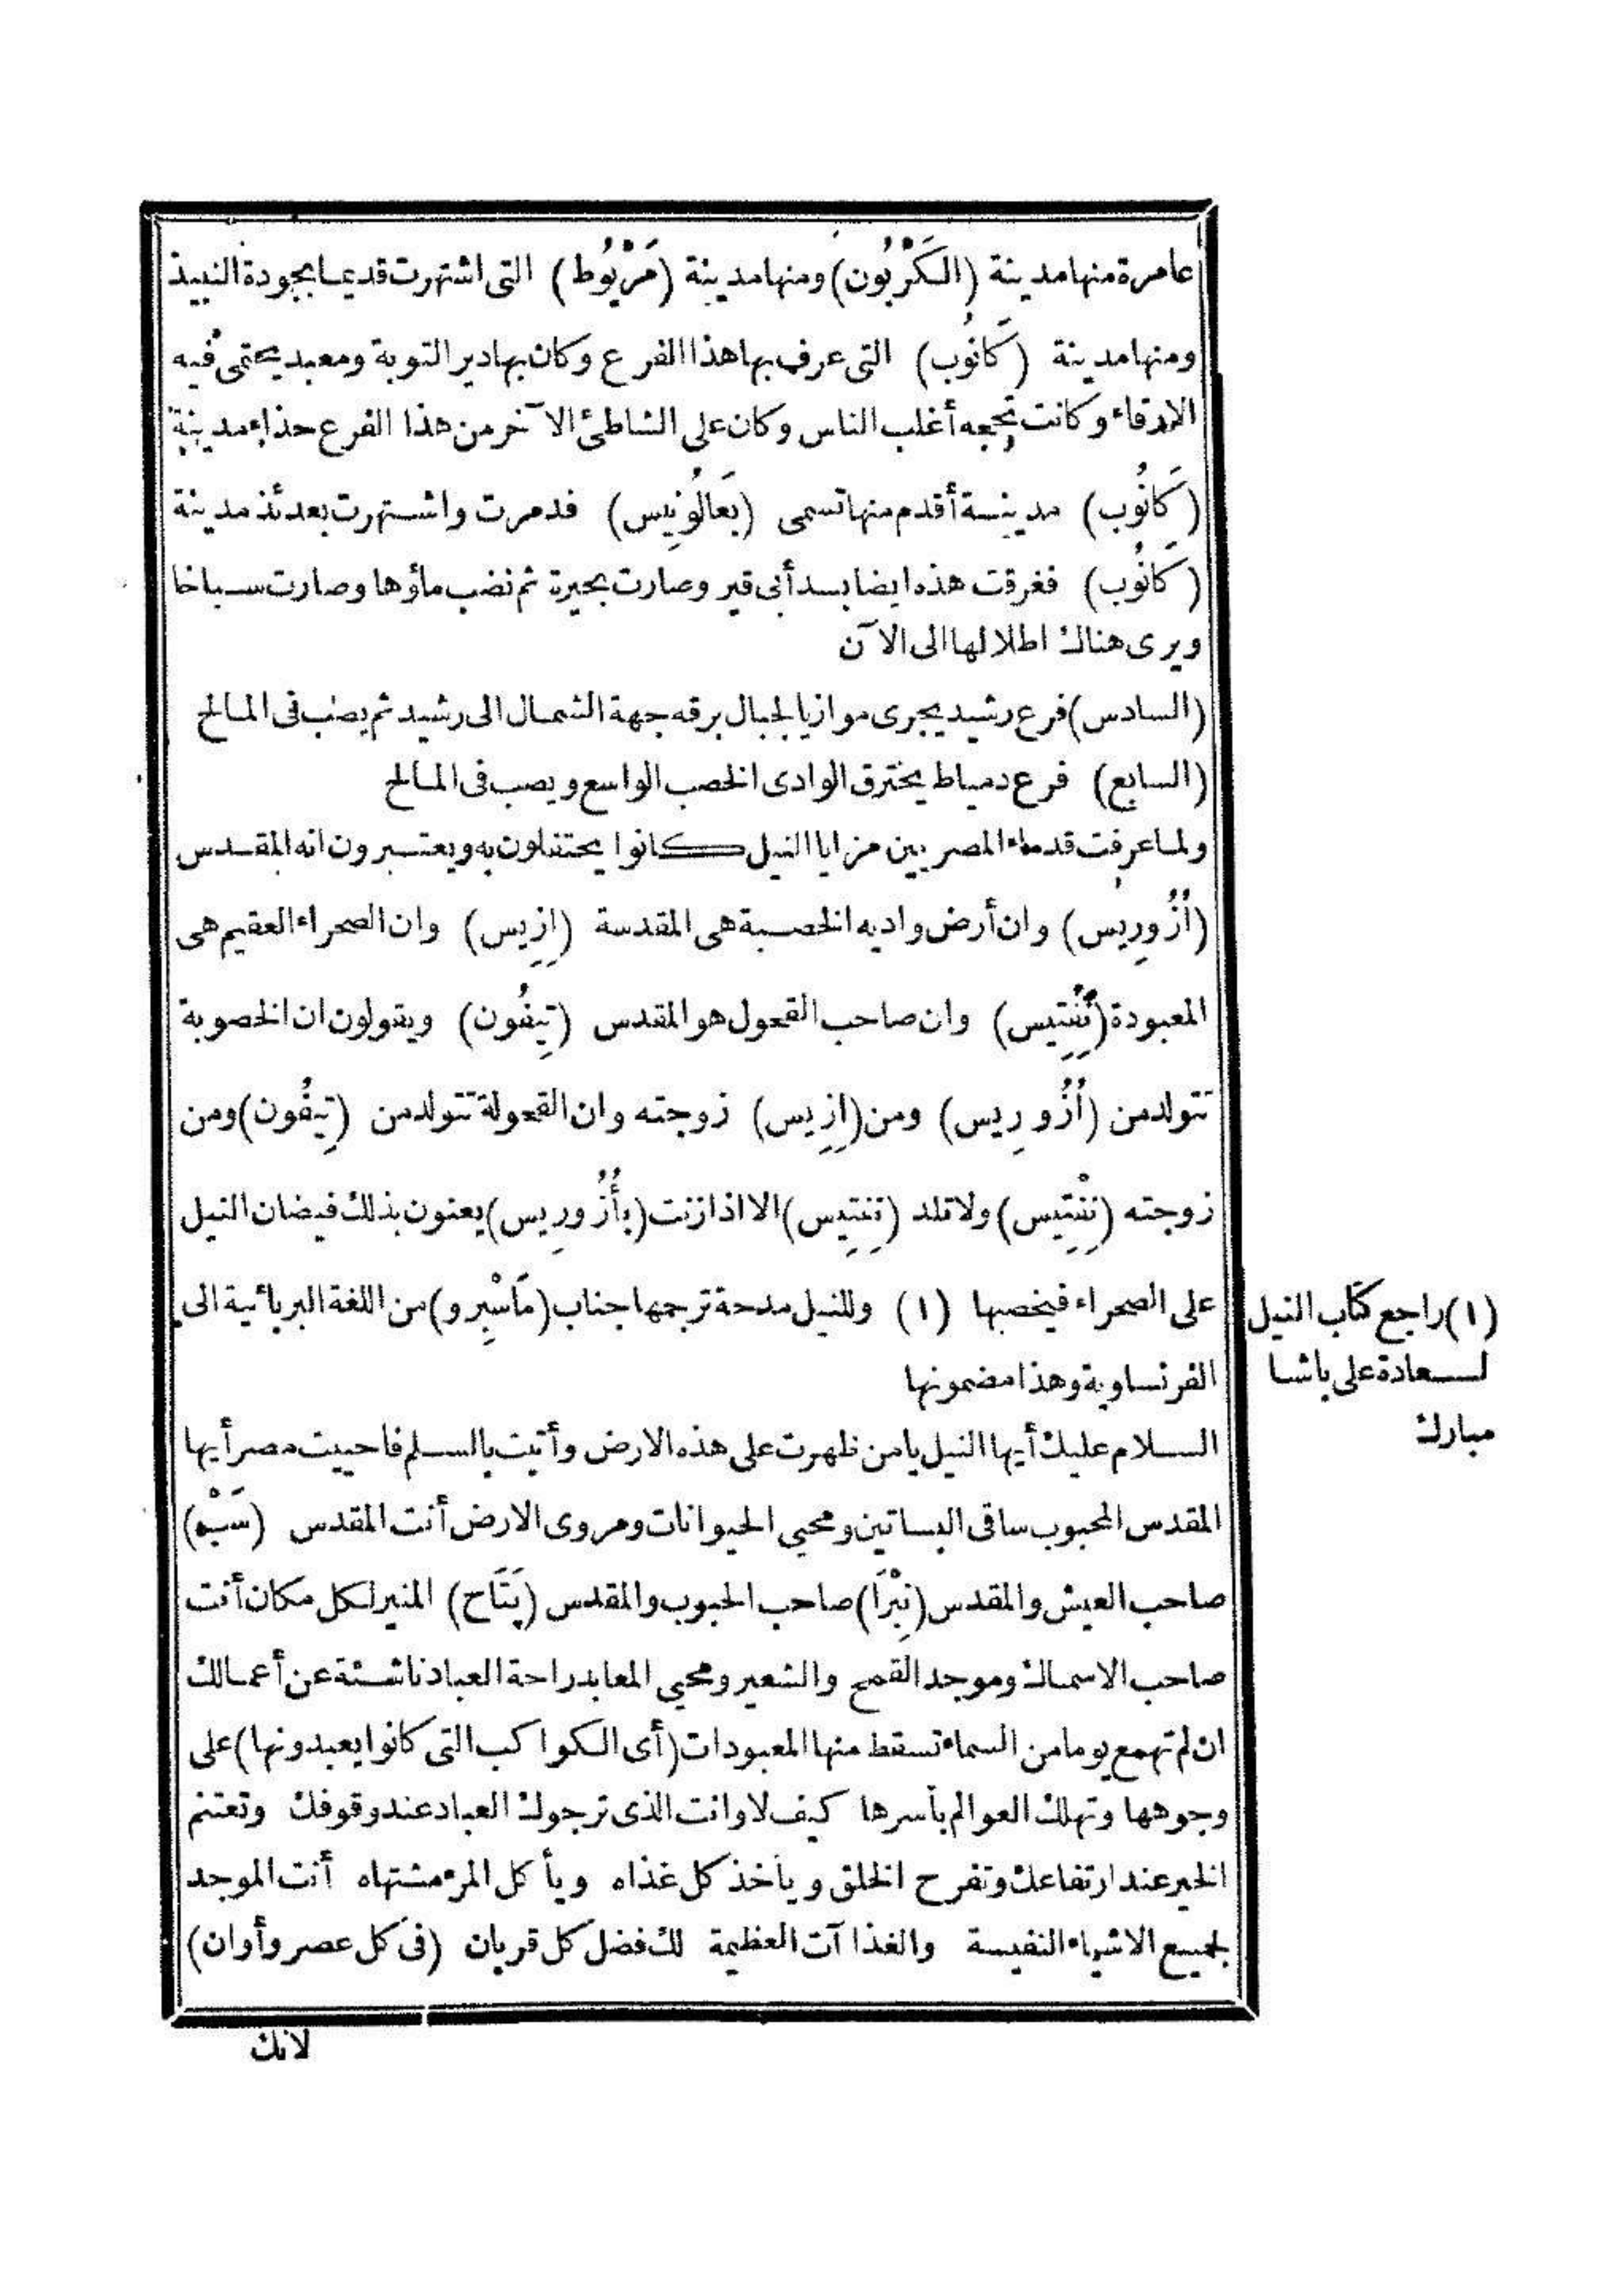 عامرة منها مدينة (الكَرْبُون) ومنها مدينة (مَرْيُوط) التى اشتهرت قديما بجودة النبيذ
ومنها مدينة (كَانُوب) التى عرف بها هذا الفرع وكان بها دير التوبة ومعبد يحتمى فيه
الارقاء وكانت تحجه أغلب الناس وكان على الشاطئ الآخر من هذا الفرع حذاء مدينة
(كَانُوب) مدينة أقدم منها تسمى (بَعالُونِيس) فدمرت واشتهرت بعدئذ مدينة
(كَانُوب) فغرقت هذه ايضا بسد أبى قير وصارت بحيرة ثم نضب ماؤها وصارت سباخا
ويرى هناك اطلالها الى الآن
(السادس) فرع رشيد يجرى موازيا لجبال برقه جهة الشمال الى رشيد ثم يصب فى المالح
(السابع) فرع دمياط يخترق الوادى الخصب الواسع ويصب فى المالح
ولما عرفت قدماء المصريين مزايا النيل كانوا يحتفلون به ويعتبرون انه المقدس
(أُزُورِيس) وان أرض واديه الخصبة هى المقدسة (إِزِيس) وان الصحراء العقيم هى
المعبودة (نِفْتِيس) وان صاحب القحول هو المقدس (تِيفُون) ويقولون ان الخصوبة
تتولد من (أُزُورِيس) ومن (إِزِيس) زوجته وان القحولة تتولد من (تِيفُون) ومن
زوجته (نِفْتِيس) ولا تلد (نفتِيس) الا اذا زنت (بأُزُورِيس) يعنون بذلك فيضان النيل
على الصحراء فيخصبها (١) وللنيل مدحة ترجمها جناب (مَاسْپِرو) من اللغة البربائية الى
الفرنساوية وهذا مضمونها
السلام عليك أيها النيل يا من ظهرت على هذه الارض وأتيت بالسلم فاحييت مصر أيها
المقدس المحبوب ساقى البساتين ومحيي الحيوانات ومروى الارض أنت المقدس
صاحب العيش والمقدس (نِبْرَا) صاحب الحبوب والمقدس (پَتَاح) المنير لكل مكان أنت
صاحب الاسماك وموجد القمح والشعير ومحيي المعابد راحة العباد ناشئة عن أعمالك
ان لم تهمع يوما من السماء تسقط منها المعبودات (أى الكواكب التى كانوا يعبدونها) على
وجوهها وتهلك العوالم بأسرها كيف لا وانت الذى ترجوك العباد عند وقوفك وتغتنم
الخير عند ارتفاعك وتفرح الخلق ويأخذ كل غذاه ويأكل المرء مشتهاه أنت الموجد
لجميع الاشياء النفيسة والغذاآت العظيمة لك فضل كل قربان (فى كل عصر وأوان)
لانك
(١) راجع كتاب النيل
لسعادة على باشا
مبارك